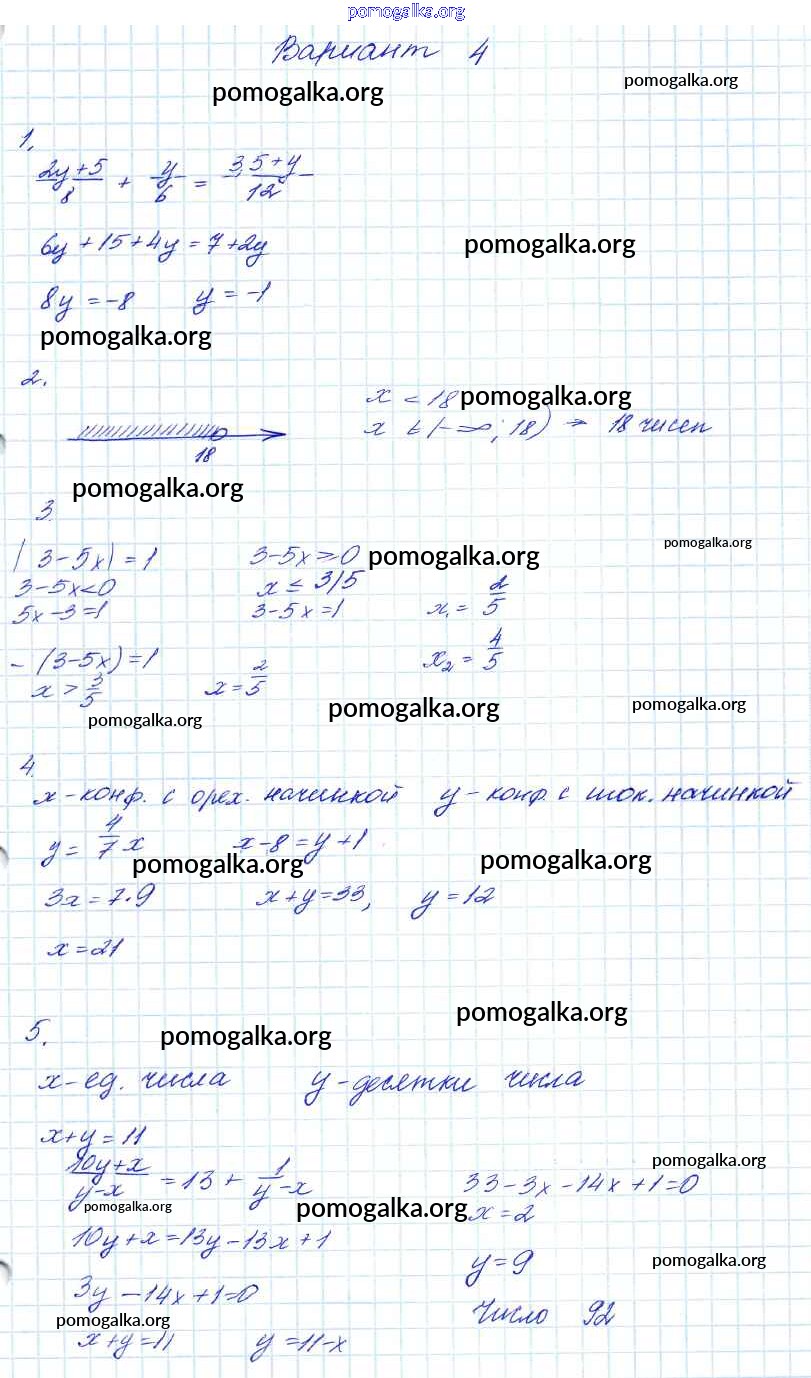 pomogalka.org
Вариант 4
pomogalka.org pomogalka.org
1.
2y+5/8 + y/6 = 3,5+y/12
6y+15+4y=7+2y pomogalka.org
8y=-8 y=-1
pomogalka.org
2.
x < 18 pomogalka.org
x ∈ (-∞; 18) ⇒ 18 чисел
18
pomogalka.org
3.
|3-5x|=1 3-5x≥0 pomogalka.org pomogalka.org
3-5x<0 x≤3/5
5x-3=1 3-5x=1 x₁=2/5
-(3-5x)=1 x₂=4/5
x>3/5 x=2/5
pomogalka.org pomogalka.org pomogalka.org
4.
x-конф. с орех. начинкой y-конф. с шок. начинкой
y=4/7 x x-8=y+1
pomogalka.org pomogalka.org
3x=7·9 x+y=33, y=12
x=21
5.
pomogalka.org pomogalka.org
x-ед. числа y-десятки числа
x+y=11
10y+x/y-x=13+1/y-x 33-3x-14x+1=0
pomogalka.org
pomogalka.org pomogalka.org x=2
10y+x=13y-13x+1
y=9 pomogalka.org
3y-14x+1=0
Число 92
pomogalka.org
x+y=11 y=11-x